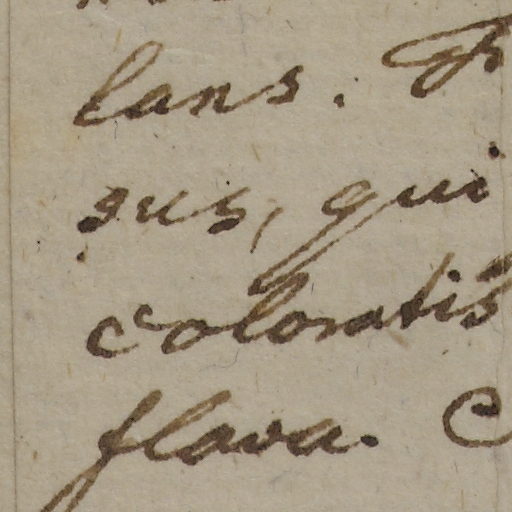 lans.
sus, qui
coloratis
flava.